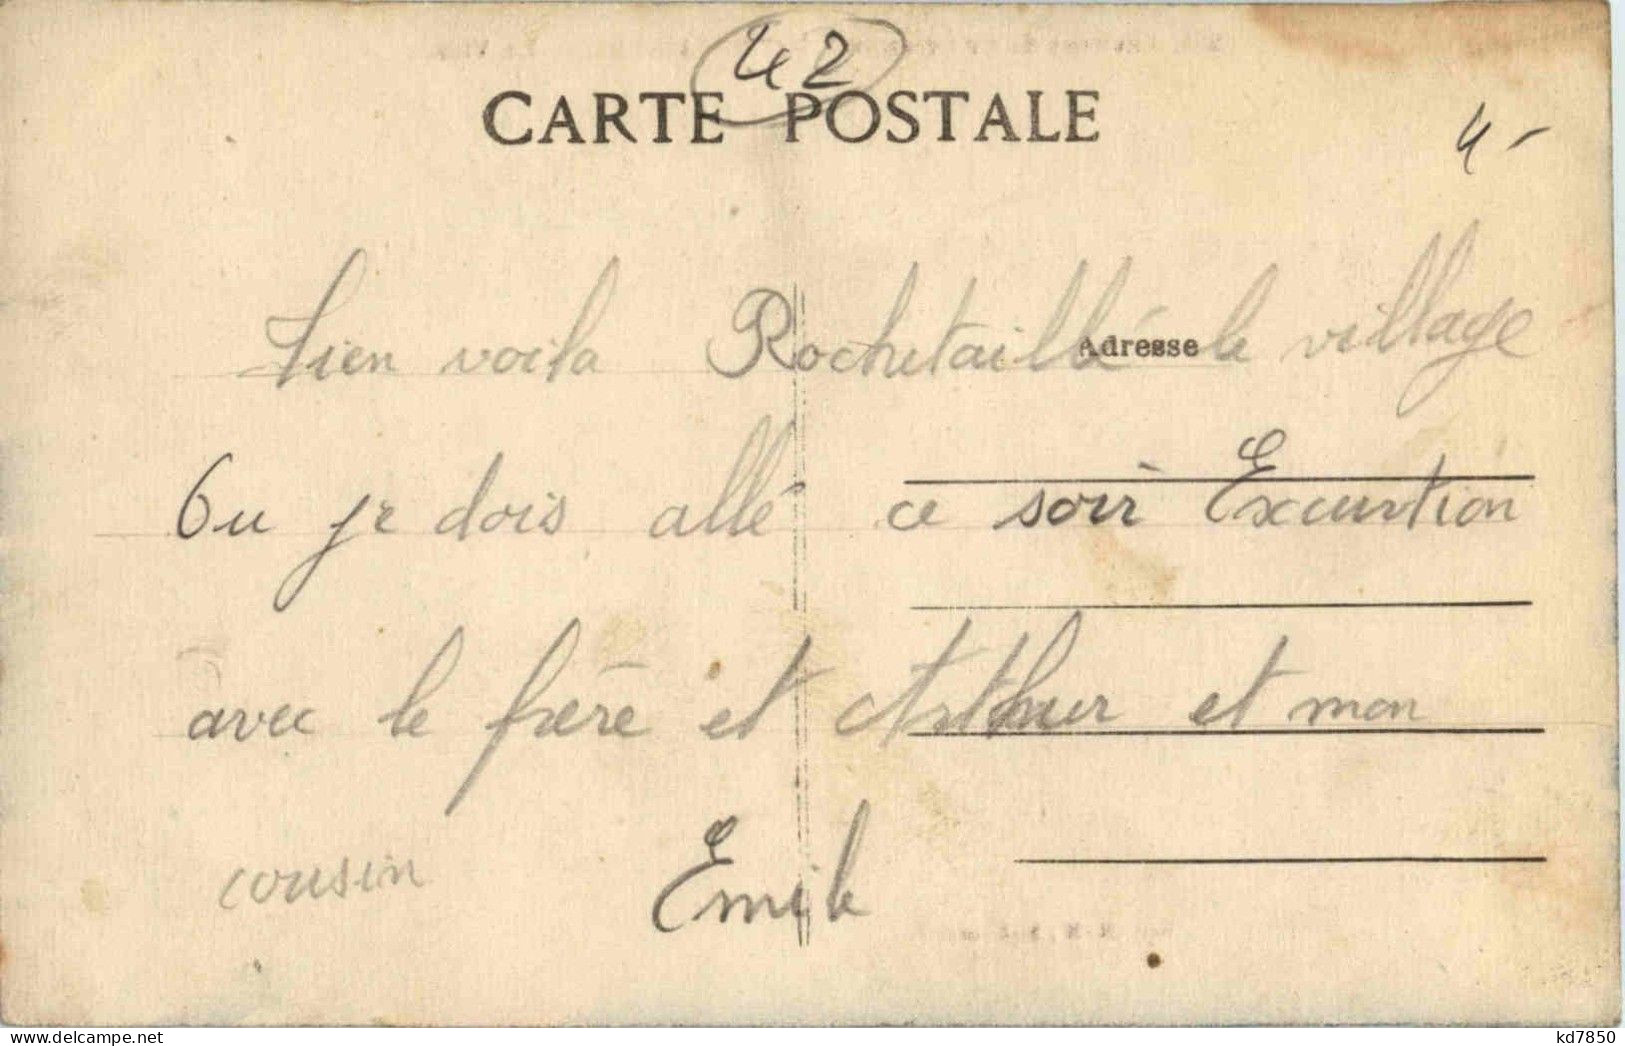 42
CARTE POSTALE
4-
Tien voila Rochetaillé le village
Adresse
Ou je dois allé ce soir Excurtion
avec le frère et Arthur et mon
cousin Emile
kd7850